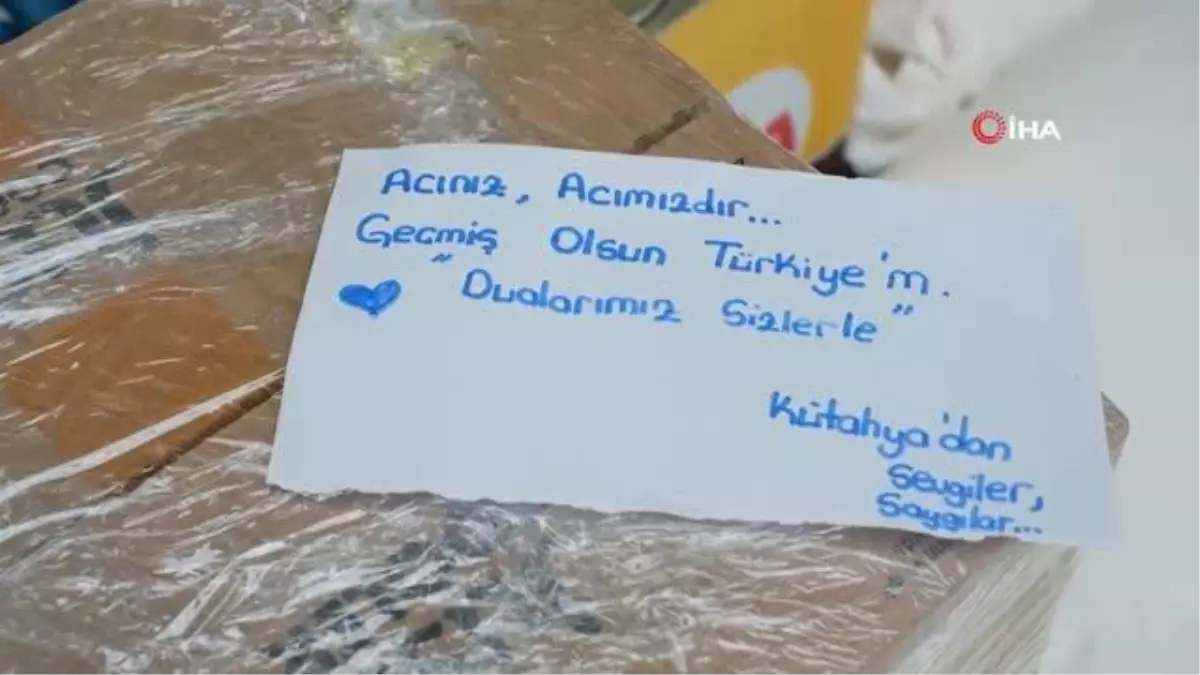 İHA
Acınız, Acımızdır...
Geçmiş Olsun Türkiye'm.
"Dualarımız Sizlerle"
Kütahya'dan
Sevgiler,
Saygılar...